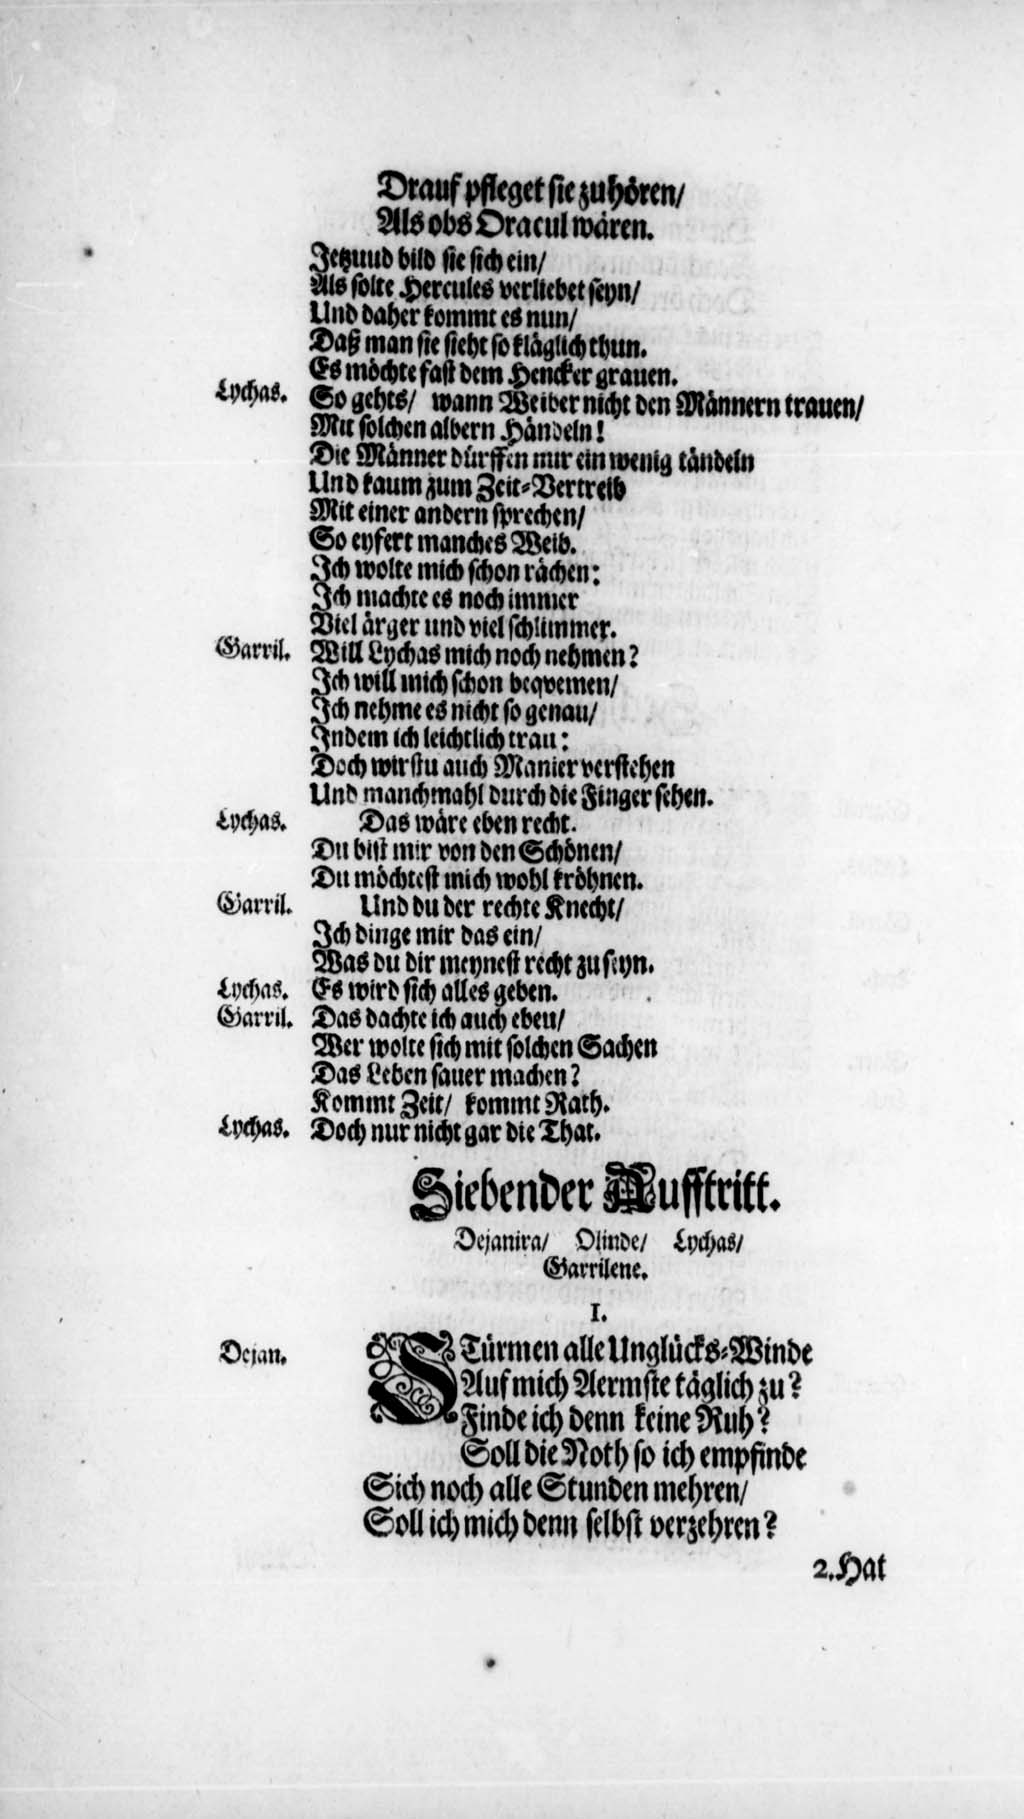 Drauf pfleget sie zu hören/
Als obs Oracul wären.
Jetzuud bild sie sich ein/
Als solte Hercules verliebet seyn/
Und daher kommt es nun/
Daß man sie sieht so kläglich thun.
Es möchte fast dem Hencker grauen.
Lychas. So gehts/ wann Weiber nicht den Männern trauen/
Mit solchen albern Händeln!
Die Männer dürffen nur ein wenig tändeln
Und kaum zum Zeit-Vertreib
Mit einer andern sprechen/
So eyfert manches Weib.
Ich wolte mich schon rächen:
Ich machte es noch immer
Viel ärger und viel schlimmer.
Garril. Will Lychas mich noch nehmen?
Ich will mich schon beqvemen/
Ich nehme es nicht so genau/
Indem ich leichtlich trau:
Doch wirstu auch Manier verstehen
Und manchmahl durch die Finger sehen.
Lychas. Das wäre eben recht.
Du bist mir von den Schönen/
Du möchtest mich wohl kröhnen.
Garril. Und du der rechte Knecht/
Ich dinge mir das ein/
Was du dir meynest recht zu seyn.
Lychas. Es wird sich alles geben.
Garril. Das dachte ich auch ebeu/
Wer wolte sich mit solchen Sachen
Das Leben sauer machen?
Kommt Zeit/ kommt Rath.
Lychas. Doch nur nicht gar die That.
Siebender Aufftritt.
Dejanira/ Olinde/ Lychas/
Garrilene.
1.
Dejan. STürmen alle Unglücks-Winde
Auf mich Aermste täglich zu?
Finde ich denn keine Ruh?
Soll die Noth so ich empfinde
Sich noch alle Stunden mehren/
Soll ich mich denn selbst verzehren?
2. Hat